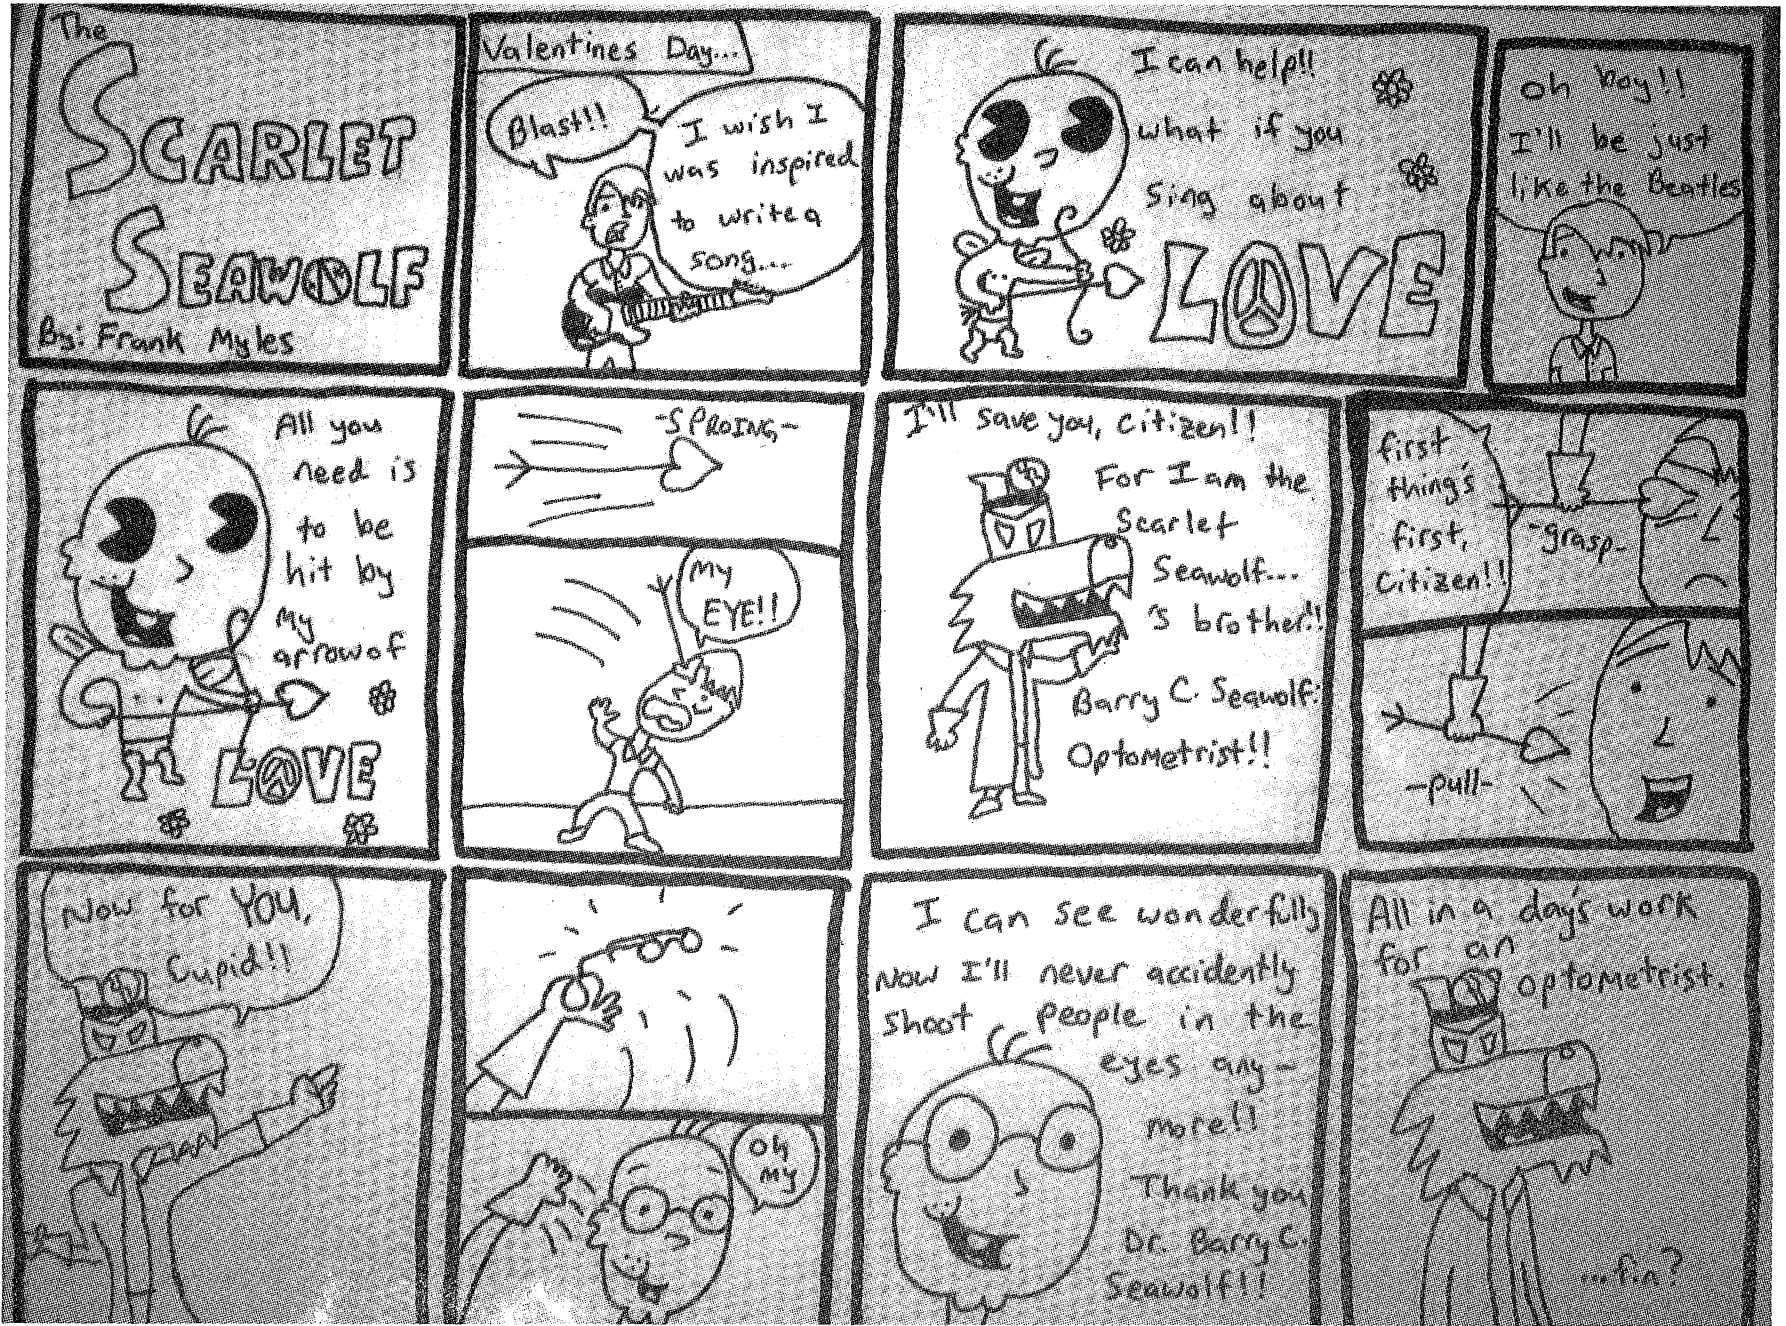 The
SCARLET
SEAWOLF
By: Frank Myles
Valentines Day...
Blast!!
I wish I
was inspired
to write a
song...
I can help!!
what if you
sing about
LOVE
oh boy!!
I'll be just
like the Beatles
All you
need is
to be
hit by
my
arrow of
LOVE
-SPROING-
My
EYE!!
I'll save you, citizen!!
For I am the
Scarlet
Seawolf...
's brother!!
Barry C. Seawolf:
Optometrist!!
first
thing's
first,
Citizen!!
-grasp-
-pull-
Now for YOU,
Cupid!!
Oh
My
I can see wonderfully
Now I'll never accidently
shoot people in the
eyes any-
more!!
Thank you
Dr. Barry C.
Seawolf!!
All in a day's work
for an
optometrist.
...fin?